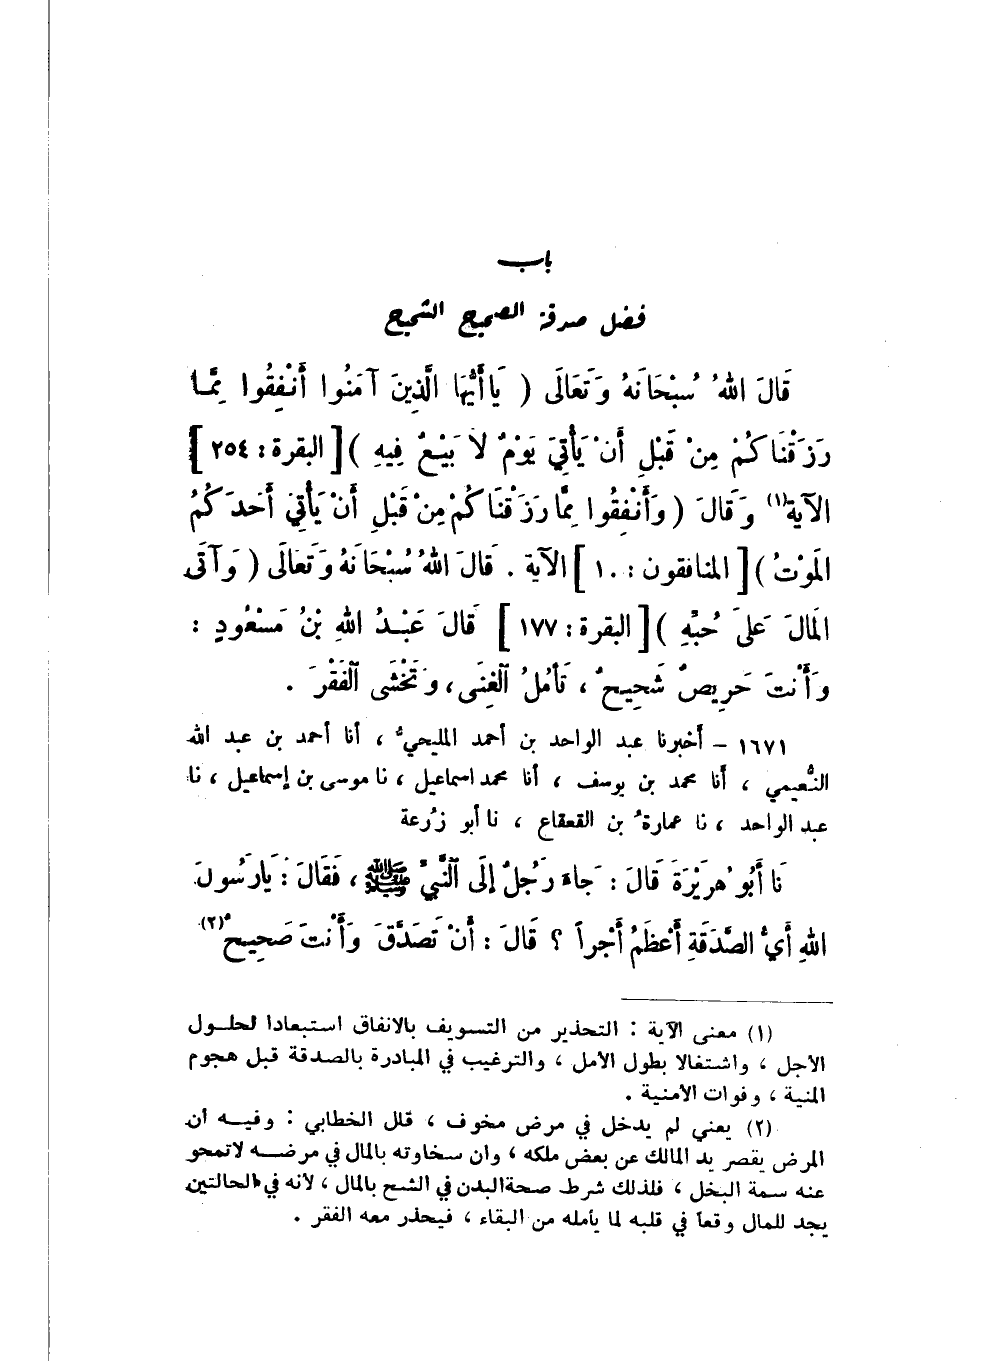 باب
فضل صدقة الصحيح الشحيح
قَالَ اللهُ سُبْحَانَهُ وَتَعَالَى ( يَا أَيُّهَا الَّذِينَ آمَنُوا أَنْفِقُوا مِمَّا
رَزَقْنَاكُمْ مِنْ قَبْلِ أَنْ يَأْتِيَ يَوْمٌ لَا بَيْعٌ فِيهِ ) [ البقرة : ٢٥٤ ]
الآية(١) وَقَالَ ( وَأَنْفِقُوا مِمَّا رَزَقْنَاكُمْ مِنْ قَبْلِ أَنْ يَأْتِيَ أَحَدَكُمُ
المَوْتُ ) [ المنافقون : ١٠ ] الآية . قَالَ اللهُ سُبْحَانَهُ وَتَعَالَى ( وَآتَى
المَالَ عَلَى حُبِّهِ ) [ البقرة : ١٧٧ ] قَالَ عَبْدُ اللهِ بْنُ مَسْعُودٍ :
وَأَنْتَ حَرِيصٌ شَحِيحٌ ، تَأْمُلُ الْغِنَى ، وَتَخْشَى الْفَقْرَ .
١٦٧١ - أخبرنا عبد الواحد بن أحمد المليحيُّ ، أنا أحمد بن عبد الله
النُّعيمي ، أنا محمد بن يوسف ، أنا محمد اسماعيل ، نا موسى بن إسماعيل ، نا
عبد الواحد ، نا عمارةُ بن القعقاع ، نا أبو زُرعة
نَا أَبُو هُرَيْرَةَ قَالَ : جَاءَ رَجُلٌ إِلَى النَّبِيِّ ﷺ ، فَقَالَ : يَا رَسُولَ
اللهِ أَيُّ الصَّدَقَةِ أَعْظَمُ أَجْراً ؟ قَالَ : أَنْ تَصَدَّقَ وَأَنْتَ صَحِيحٌ(٢)
(١) معنى الآية : التحذير من التسويف بالانفاق استبعادا لحلول
الأجل ، واشتغالا بطول الأمل ، والترغيب في المبادرة بالصدقة قبل هجوم
المنية ، وفوات الأمنية .
(٢) يعني لم يدخل في مرض مخوف ، قلل الخطابي : وفيه أن
المرض يقصر يد المالك عن بعض ملكه ، وان سخاوته بالمال في مرضه لاتمحو
عنه سمة البخل ، فلذلك شرط صحة البدن في الشح بالمال ، لأنه في الحالتين
يجد للمال وقعاً في قلبه لما يأمله من البقاء ، فيحذر معه الفقر .